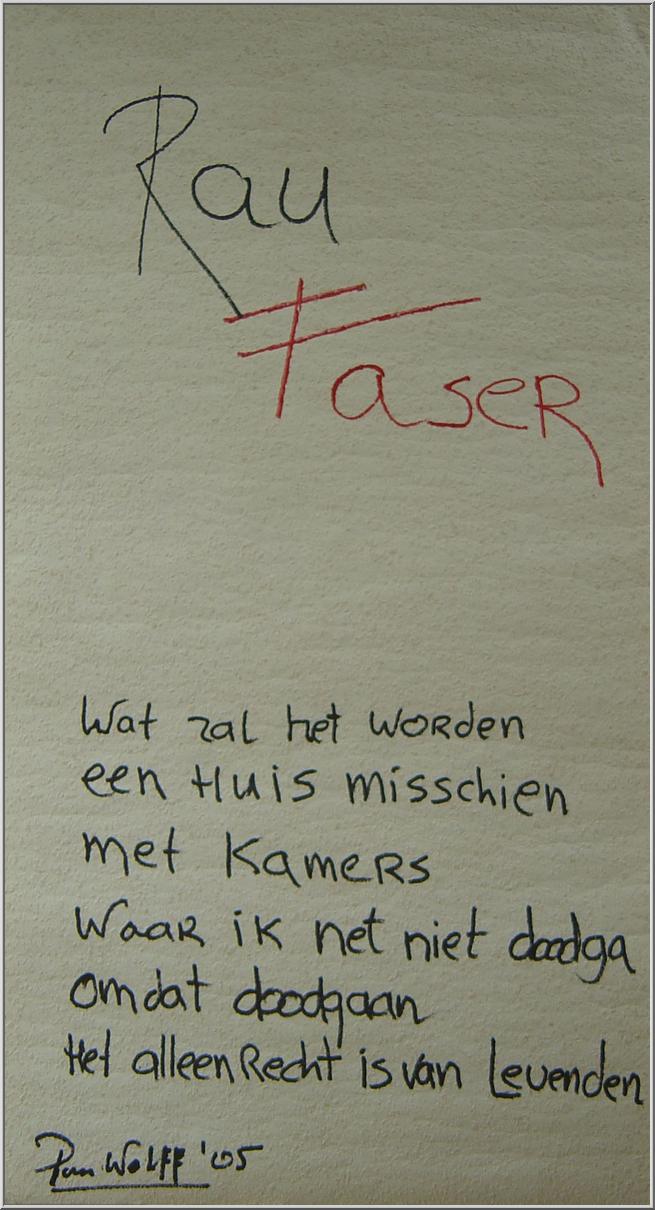 Rau
FaseR
Wat zal het WORden
een Huis misschien
met KameRs
WaaR ik net niet doodga
omdat doodgaan
Het alleenRecht is van Levenden
Wolff '05